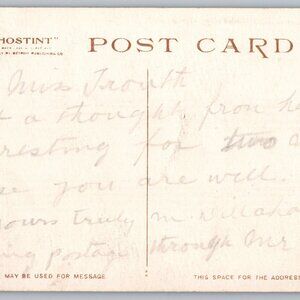 HOSTINT"
POST CARD
Miss Trouth
a thought from h
resting for two
you are well.
yours truly m
ing postage through Mr
MAY BE USED FOR MESSAGE
THIS SPACE FOR THE ADDRES